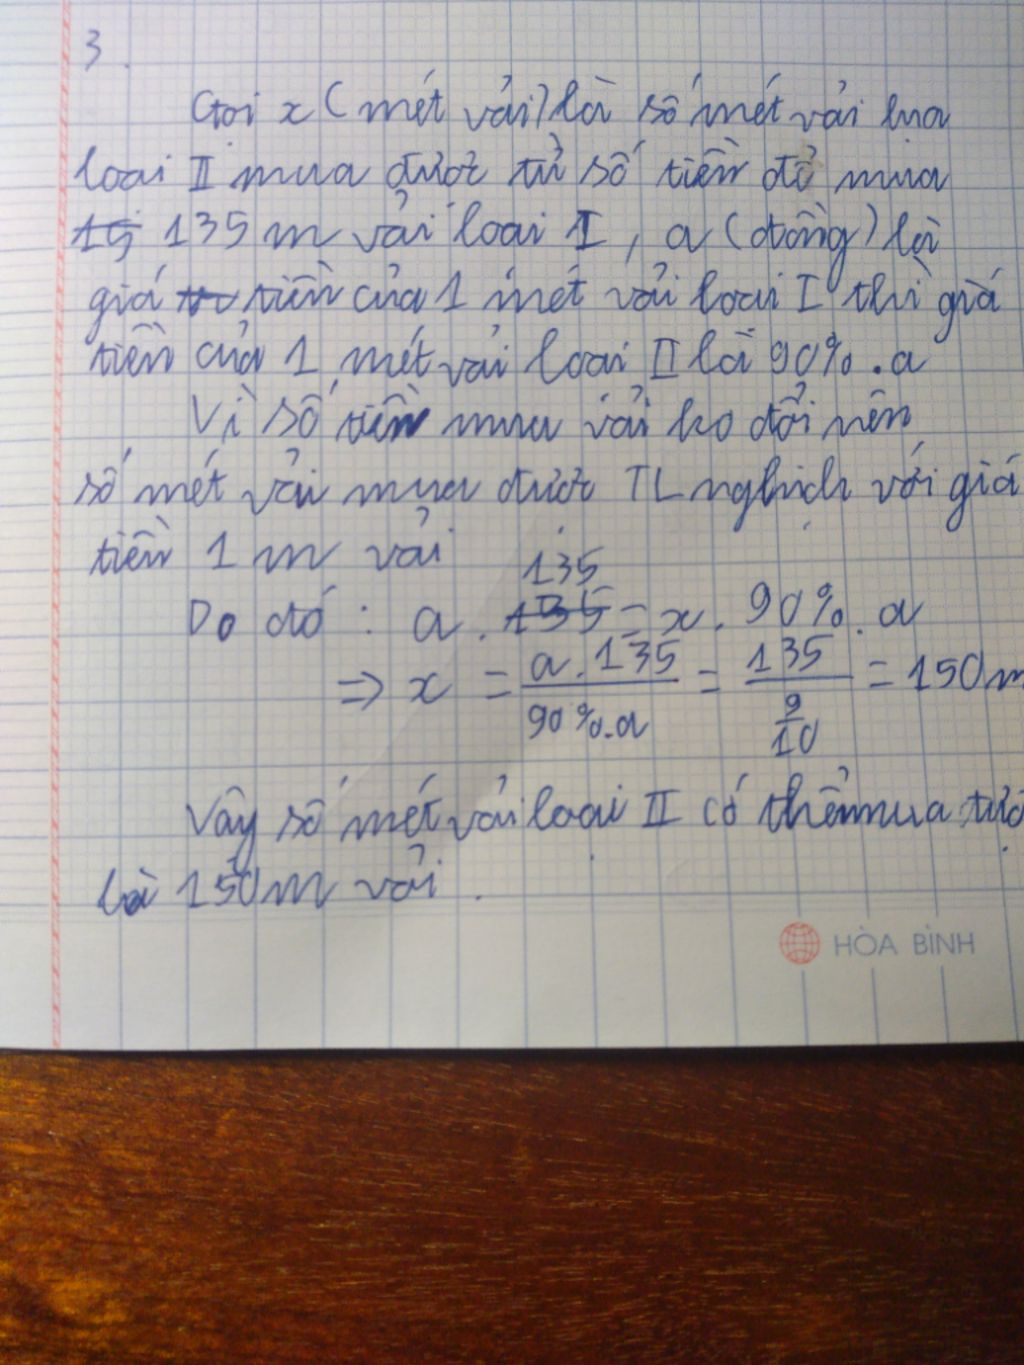 3.
Gọi x (mét vải) là số mét vải lụa
loại II mua được từ số tiền để mua
15 135 m vải loại I, a (đồng) là
giá tiền của 1 mét vải loại I thì giá
tiền của 1 mét vải loại II là 90%.a
Vì số tiền mua vải ko đổi nên
số mét vải mua được TL nghịch với giá
tiền 1 m vải
135
Do đó : a. 135 = x. 90%.a
=> x = a.135 / 90%.a = 135 / 9/10 = 150m
Vậy số mét vải loại II có thể mua đượ
là 150m vải.
HÒA BÌNH